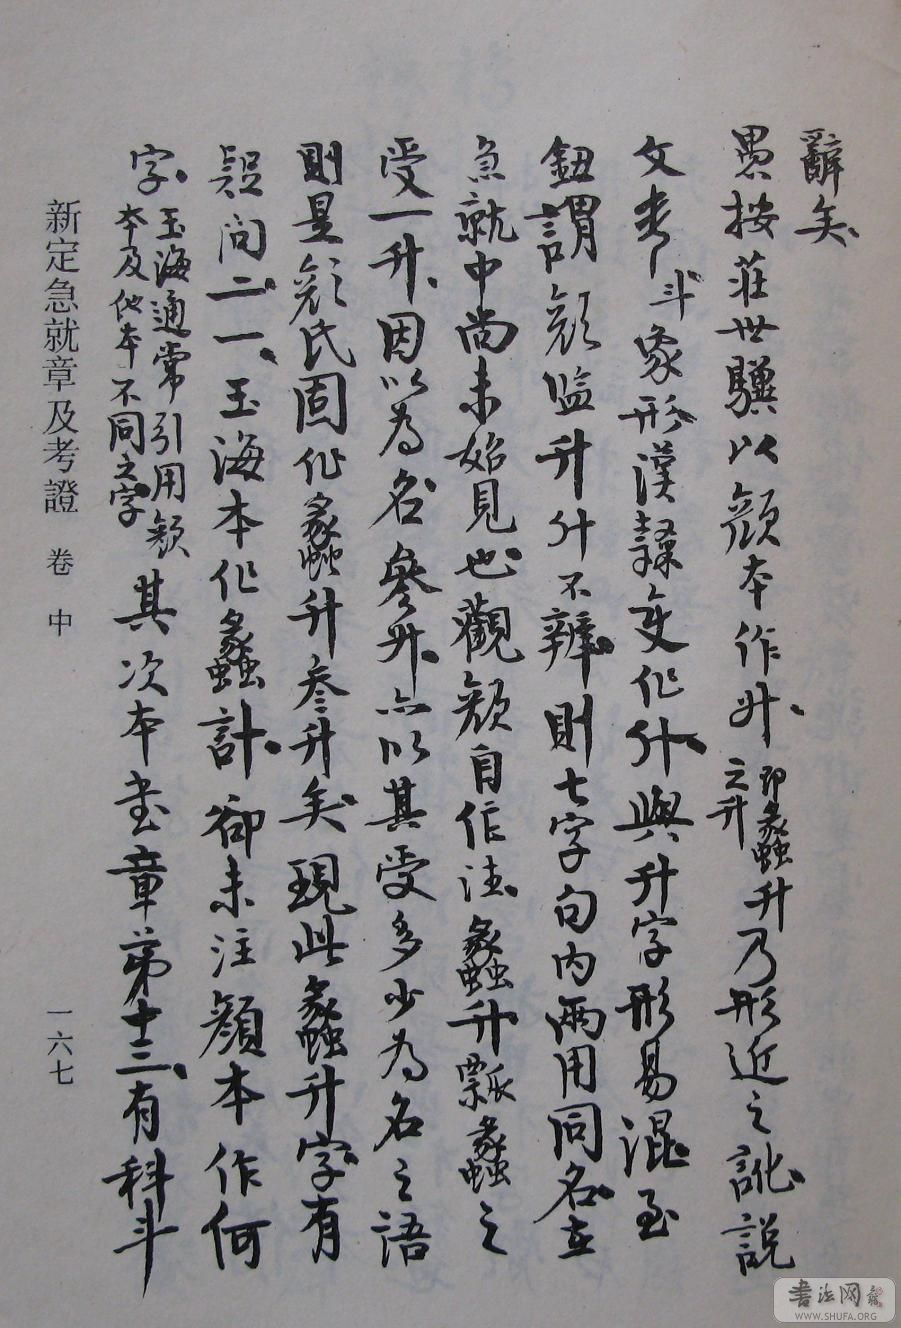 辭矣
愚按莊世驥以顏本作升、即蠡升之升乃形近之訛說
文斗象形漢隸變作什、與升字形易混至
鈕謂顏監升什不辨則七字句內兩用同名在
急就中尚未始見也觀顏自作注、蠡升瓢蠡之
受一升、因以為名參升、亦以其受多少為名之語
則是顏氏固作蠡升參升矣現此蠡升字有
疑問二、一、玉海本作蠡計、卻未注顏本作何
字、玉海通常引用顏本及他本不同之字其次本書章草第十三、有科斗
新定急就章及考證 卷中
一六七
書法网
WWW.SHUFA.ORG